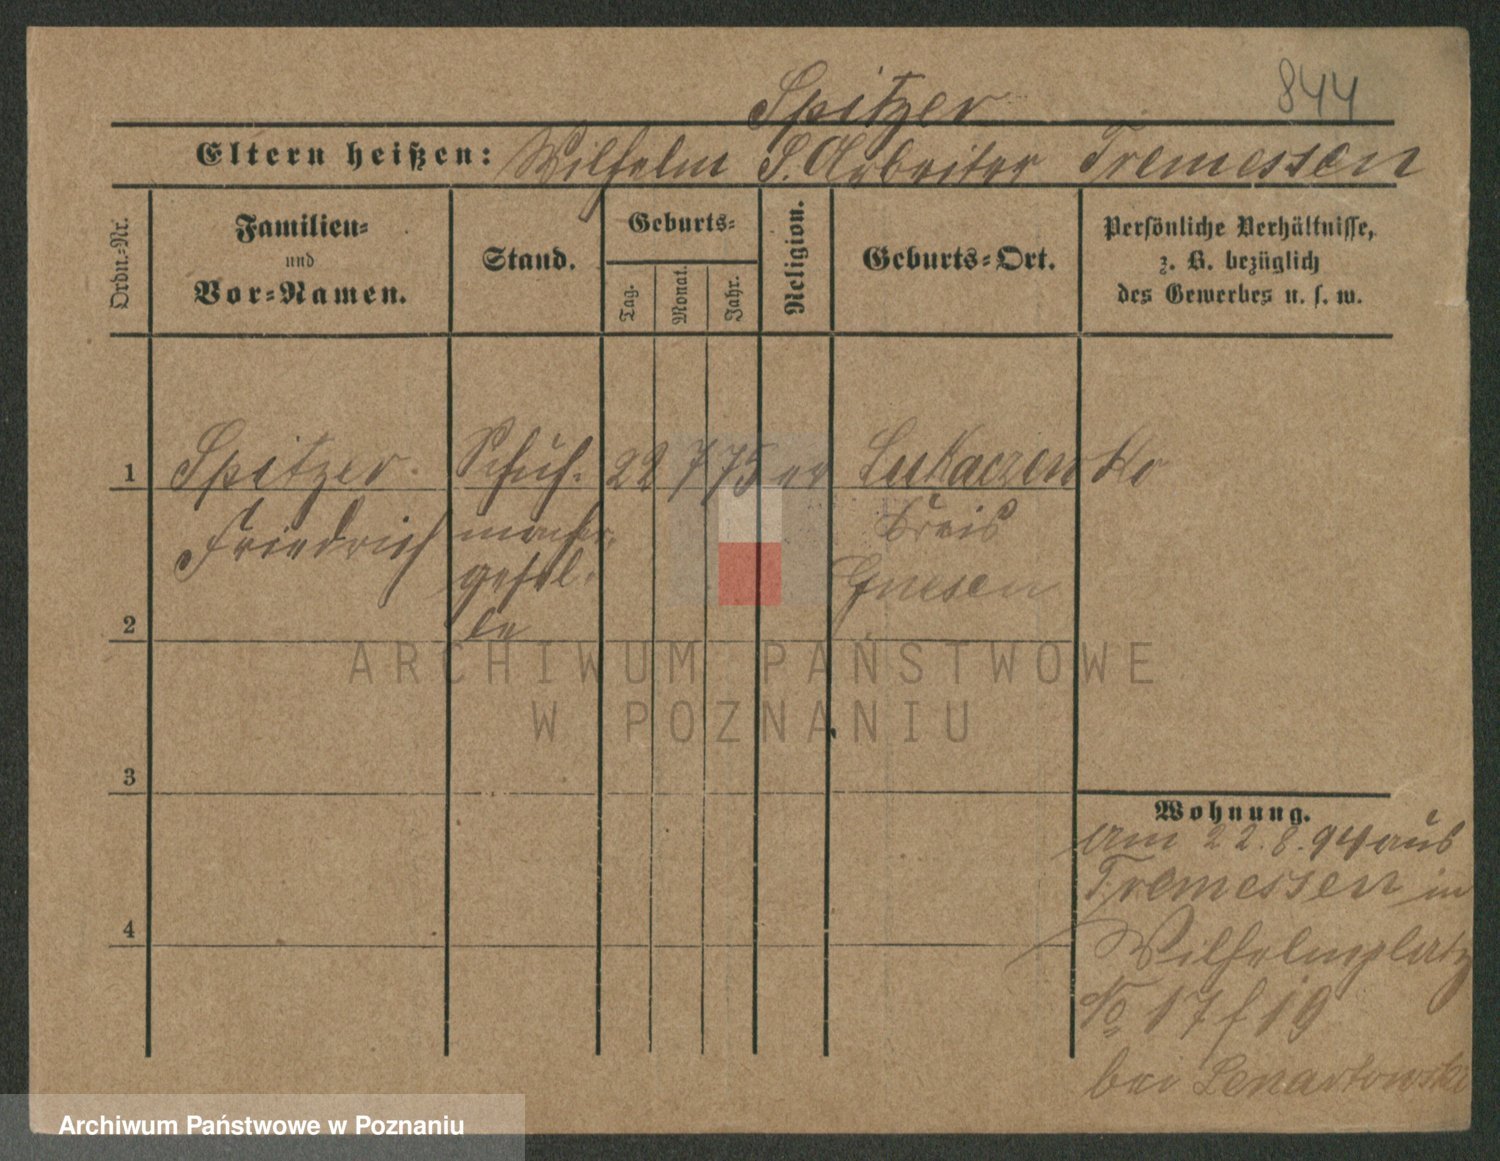 844
Spitzer
Eltern heißen: Wilhelm S. Arbeiter Tremessen
Ordn.-Nr.
Familien-
und
Vor-Namen.
Stand.
Geburts-
Tag.
Monat.
Jahr.
Religion.
Geburts-Ort.
Persönliche Verhältnisse,
z. B. bezüglich
des Gewerbes u. s. w.
1 Spitzer Schuh- 22 7 75 ev Lukaczewko
Friedrich macher- Kreis
gesel- Gnesen
2 le
ARCHIWUM PAŃSTWOWE
W POZNANIU
3
Wohnung.
Am 22.8.94 aus
Tremessen in
4 Wilhelmplatz
No 17 f 19
bei Lenartowski
Archiwum Państwowe w Poznaniu